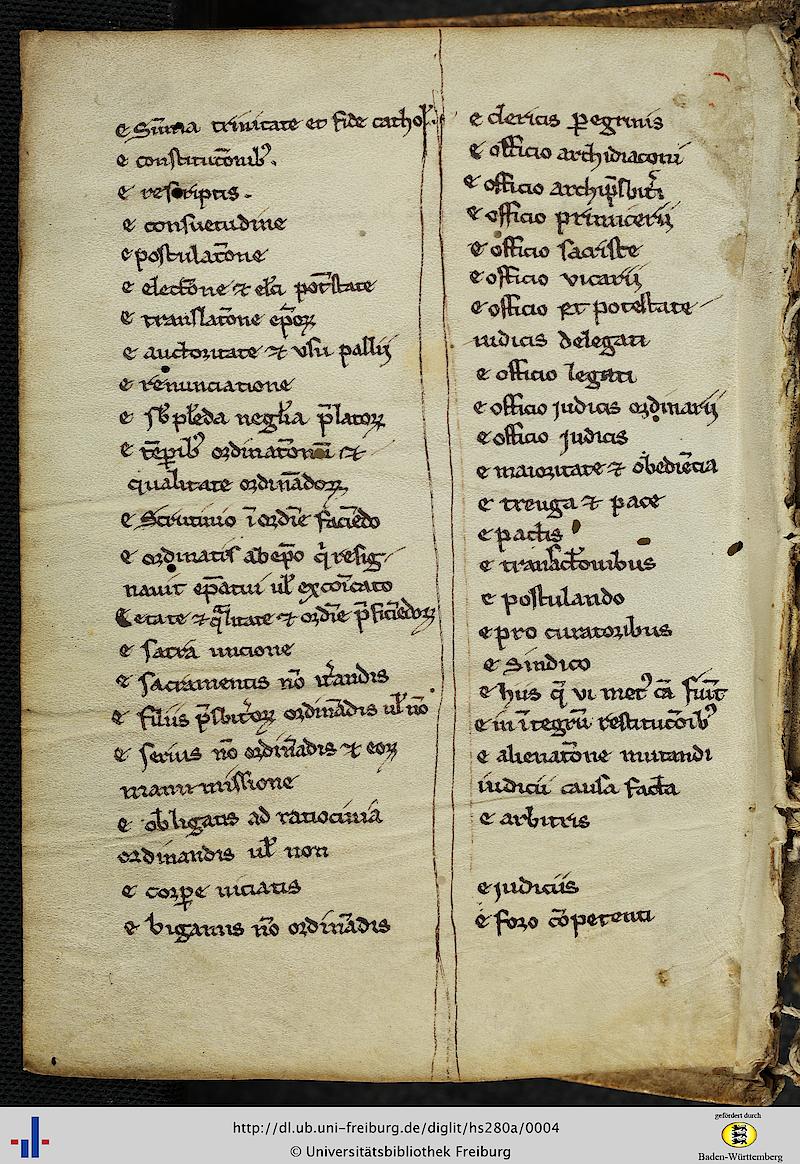 e Sūma trinitate et fide cathoł.
e constitutōnibꝰ.
e rescriptis.
e consuetudine
e postulatōne
e electōne ⁊ ełci potr̄state
e translatōne ep̄oꝝ
e auctoritate ⁊ usu pallij
e renunciatione
e sb̄ płeda negłia p̄latoꝝ
e tēꝑibꝰ ordinatōnū ⁊
qualitate ordinādoꝝ
e Scrutinio ī ordīe faciēdo
e ordinatis ab ep̄o q̇ resig-
nauit ep̄atui uł excōicato
e etate ⁊ q̄litate ⁊ ordīe p̄ficiēdoꝝ
e sacra unctione
e sacramentis nō it̄andis
e filiis p̄sbit̄oꝝ ordinādis uł nō
e seruis nō ordinādis ⁊ eoꝝ
manumissione
e obligatis ad ratiocinia
ordinandis uł non
e corꝑe uiciatis
e bigamis nō ordinādis
e clericis ꝑegrinis
e officio archidiaconi
e officio archip̄sbit̄i
e officio primicerii
e officio sacriste
e officio vicarii
e officio et potestate
iudicis delegati
e officio legati
e officio judicis ordinarij
e officio judicis
e maioritate ⁊ obediēcia
e treuga ⁊ pace
e pactis
e transactōnibus
e postulando
e pro curatoribus
e Sindico
e hiis q̄ vi metꝰ cā fiūt
e in ītegrū restitutōibꝰ
e alienatōne mutandi
iudicii causa facta
e arbitris
e judiciis
e foro cōpetenti
http://dl.ub.uni-freiburg.de/diglit/hs280a/0004
© Universitätsbibliothek Freiburg
gefördert durch
Baden-Württemberg